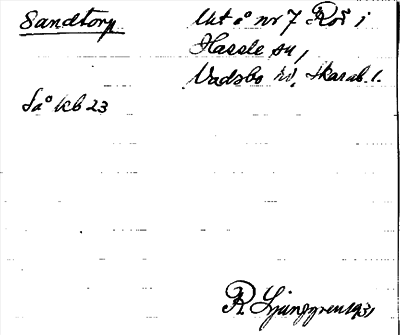 Sandtorp
Utt å nr 7 Röš i
Hassle sn,
Vadsbo hd, Skarab. l.
Så kb 23
R. Ljunggren 1931